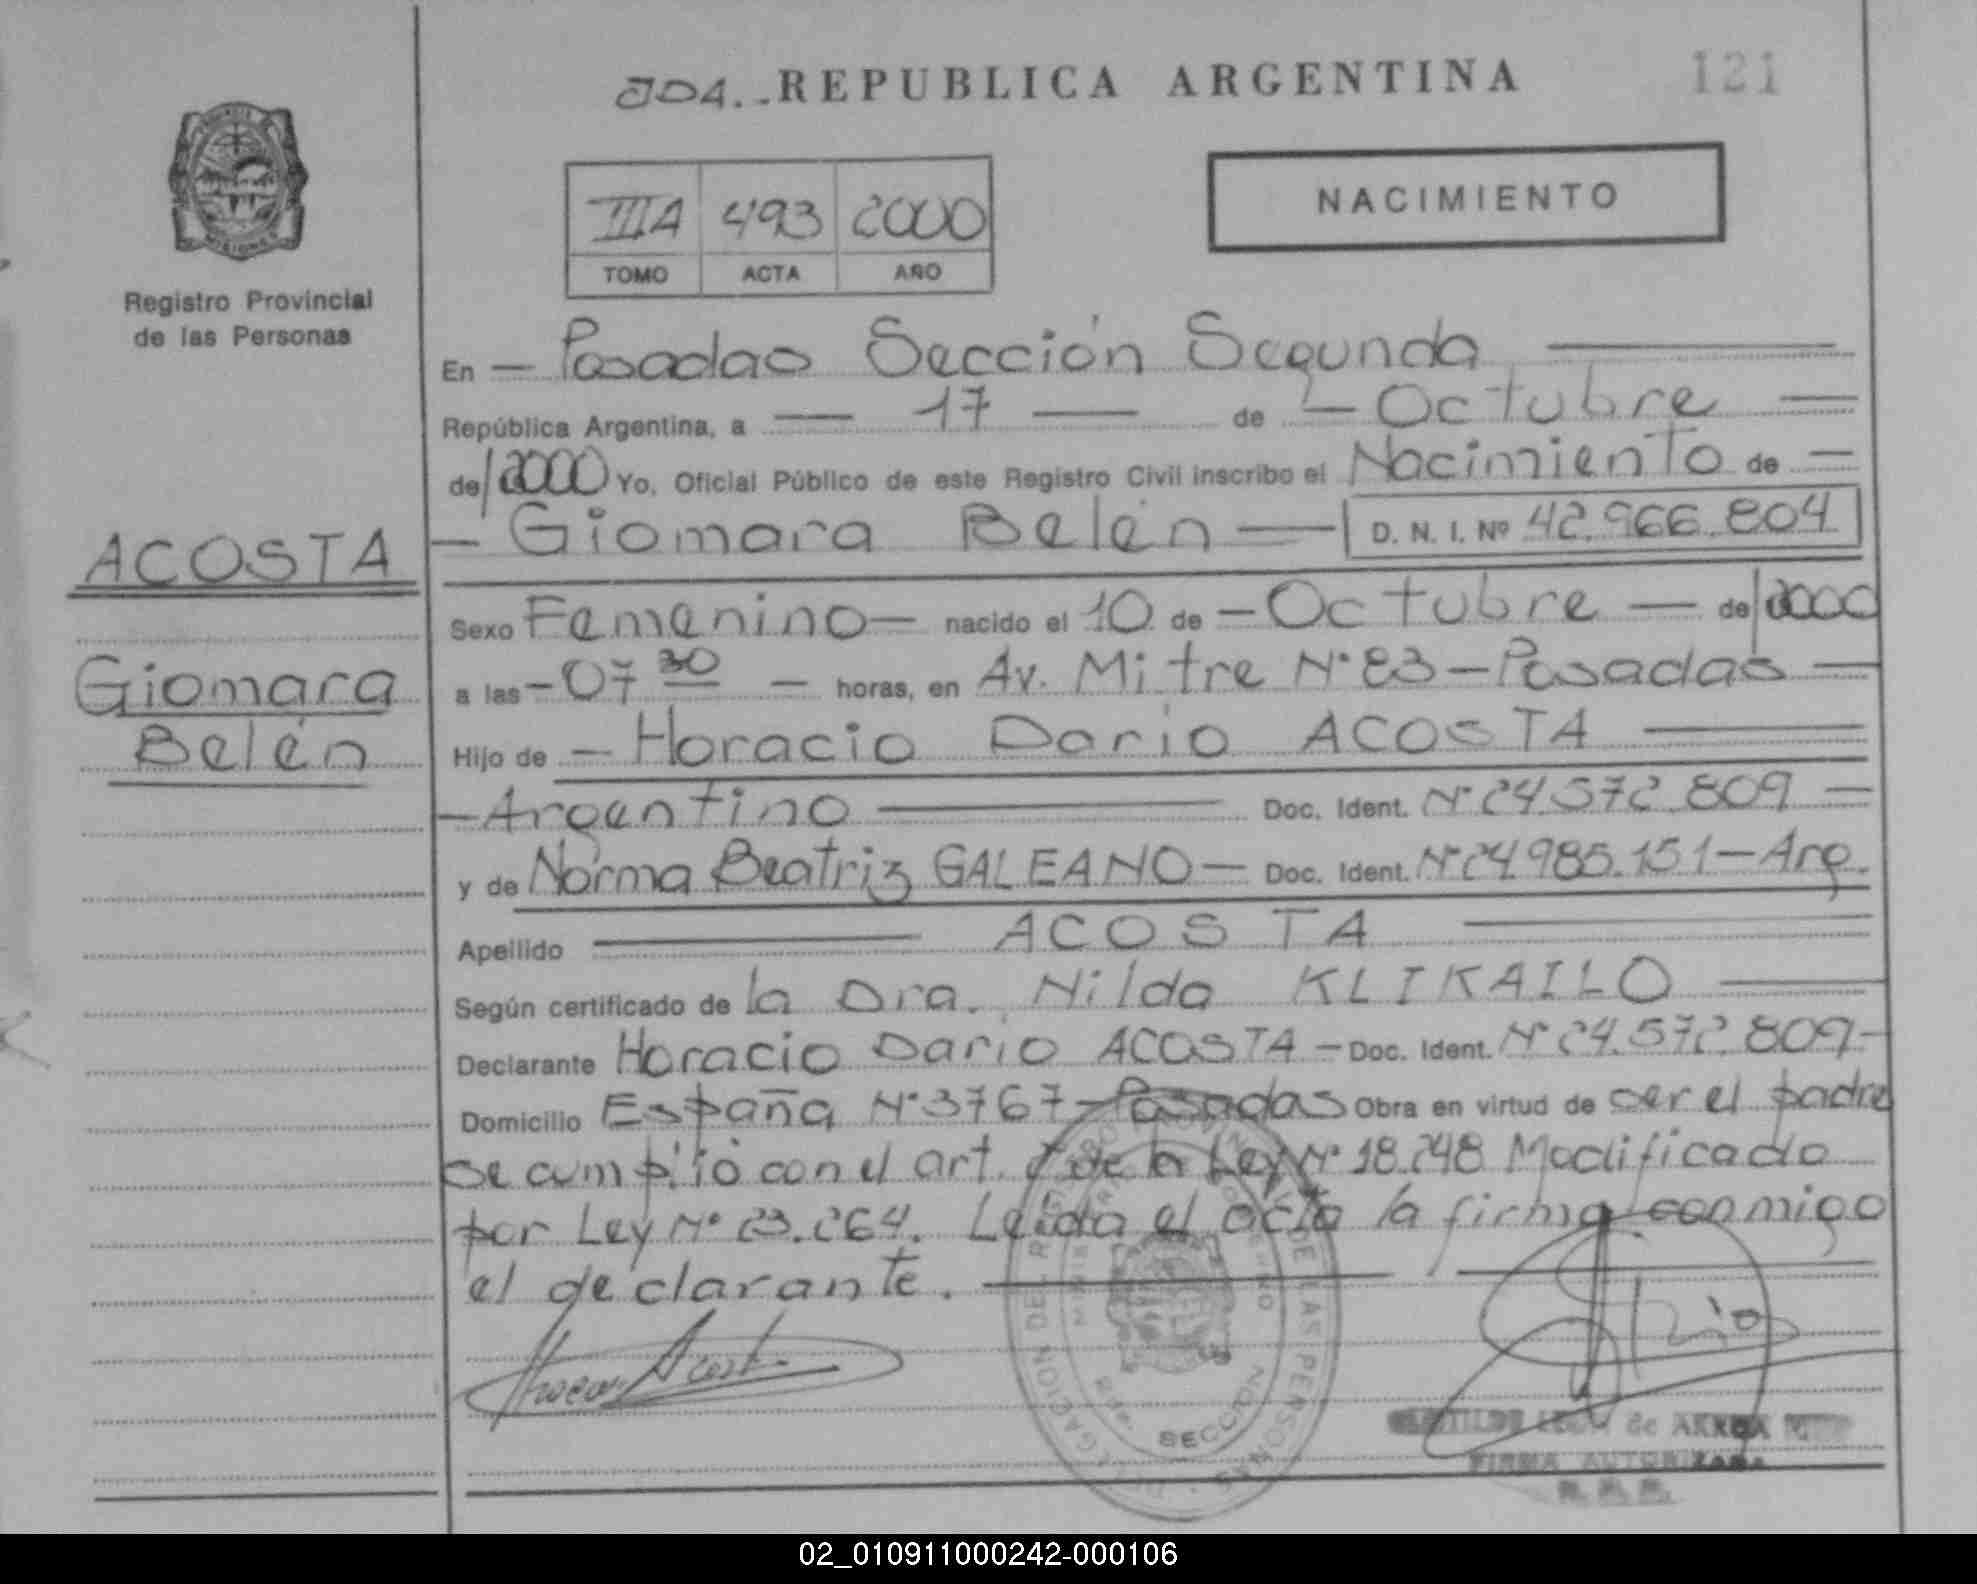 804.- REPUBLICA ARGENTINA
121
MISIONES
Registro Provincial
de las Personas
NACIMIENTO
IIIA 493 2000
TOMO ACTA AÑO
En - Posadas Sección Segunda
República Argentina, a - 17 - de - Octubre -
de 2000 Yo, Oficial Público de este Registro Civil inscribo el Nacimiento de -
- Giomara Belén - D. N. I. Nº 42.966.804
ACOSTA
Giomara
Belén
Sexo Femenino - nacido el 10 de - Octubre - de 2000
a las - 07 30 - horas, en Av. Mitre Nº 83 - Posadas -
Hijo de - Horacio Dario ACOSTA
- Argentino - Doc. Ident. Nº 24.572.809 -
y de Norma Beatriz GALEANO - Doc. Ident. Nº 24.985.151 - Arg.
Apellido ACOSTA
Según certificado de la Dra. Nilda KLIKAILO
Declarante Horacio Dario ACOSTA - Doc. Ident. Nº 24.572.809 -
Domicilio España Nº 3767 - Posadas Obra en virtud de ser el padre
se cumplió con el art. de la Ley Nº 18.248 Modificada
por Ley Nº 23.264. Leida el acta la firma conmigo
el declarante.
Acosta
DELEGACION DEL REGISTRO PROVINCIAL DE LAS PERSONAS
2da. SECCION
de
FIRMA AUTORIZADA
R. P. P.
02_010911000242-000106